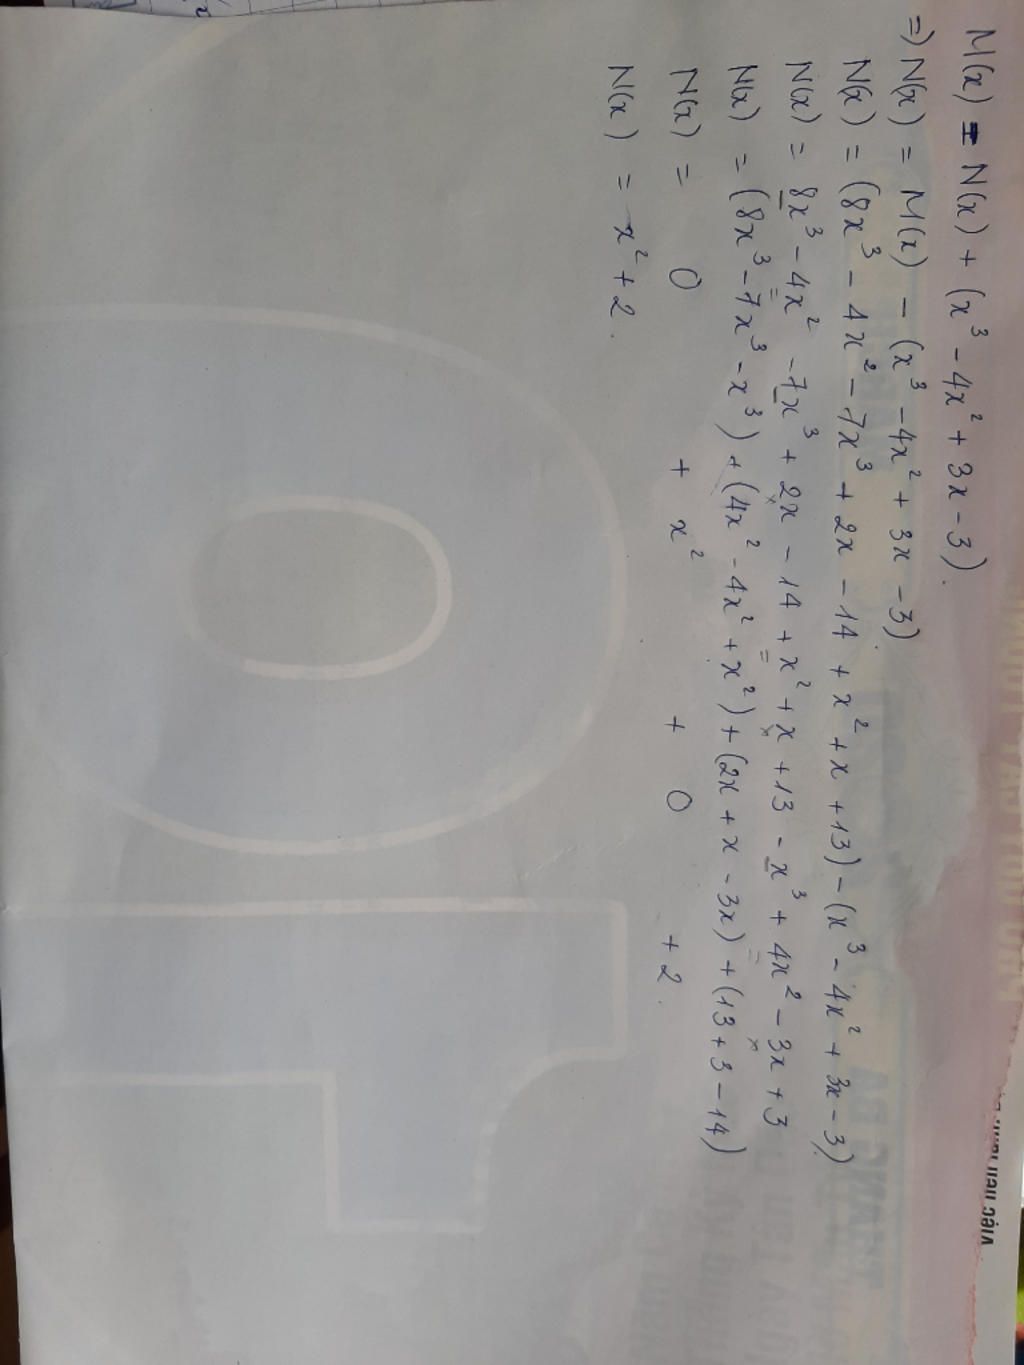 M(x) = N(x) + (x³ - 4x² + 3x - 3).
=) N(x) = M(x) - (x³ - 4x² + 3x - 3)
N(x) = (8x³ - 4x² - 7x³ + 2x - 14 + x² + x + 13) - (x³ - 4x² + 3x - 3)
N(x) = 8x³ - 4x² - 7x³ + 2x - 14 + x² + x + 13 - x³ + 4x² - 3x + 3
N(x) = (8x³ - 7x³ - x³) + (4x² - 4x² + x²) + (2x + x - 3x) + (13 + 3 - 14)
N(x) = 0 + x² + 0 + 2.
N(x) = x² + 2.